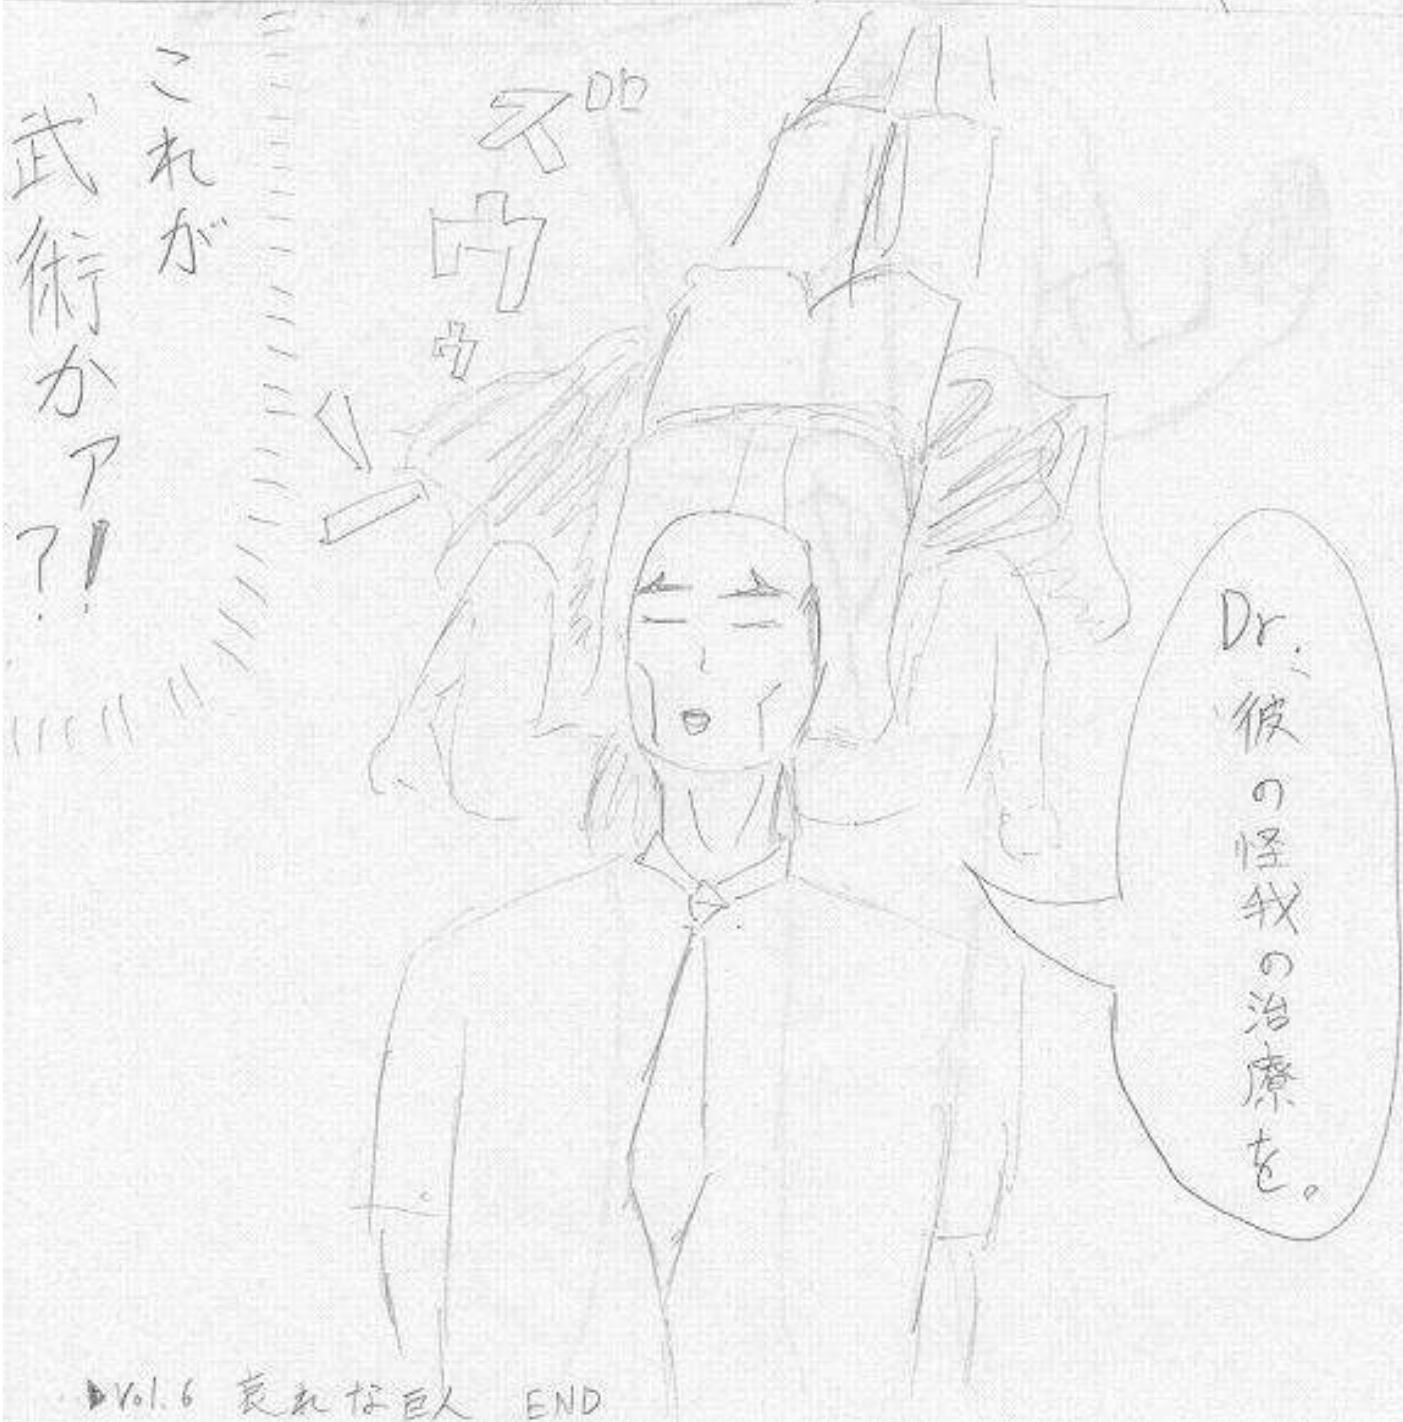 Dr.彼の怪我の治療を。
ズウゥン
これが
武術かァ!?
Vol.6 哀れな巨人 END